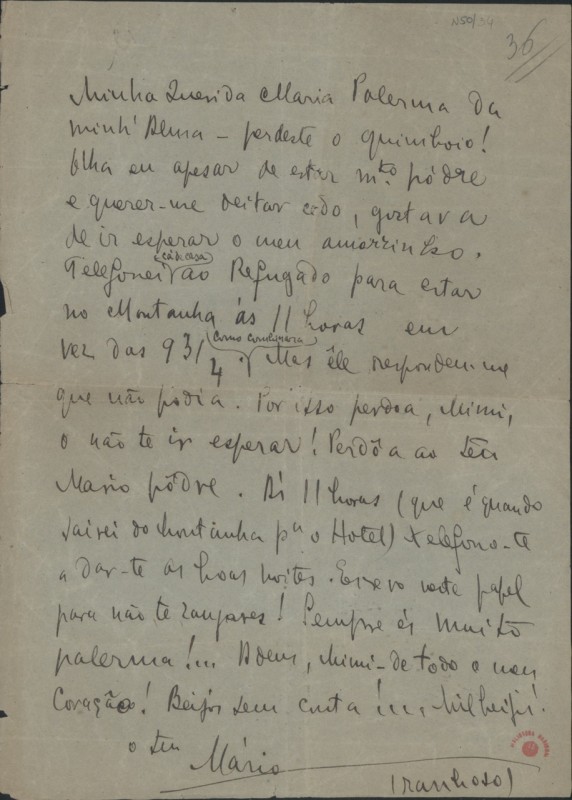 N50/34
36
Minha Querida Maria Palerma da
minh' Alma – perdeste o quimboio!
filha eu apesar de estar mto. pôdre
e querer-me deitar cedo, gostava
de ir esperar o meu amorzinho.
Telefonei (cá de casa) ao Refugado para estar
no Montanha ás 11 horas em
vez das 9 3/4 (como combinara). Mas êle respondeu-me
que não podia. Por isso perdoa, Mimi,
o não te ir esperar! Perdôa ao teu
Mario pôdre. Ás 11 horas (que é quando
sairei do Montanha pa o Hotel) telefono-te
a dar-te as boas noites. Escrevo neste papel
para não te zangares! Sempre és muito
palerma!... Adeus, Mimi – de todo o meu
Coração! Beijos sem conta!...
o teu
Mário
(ranhoso)